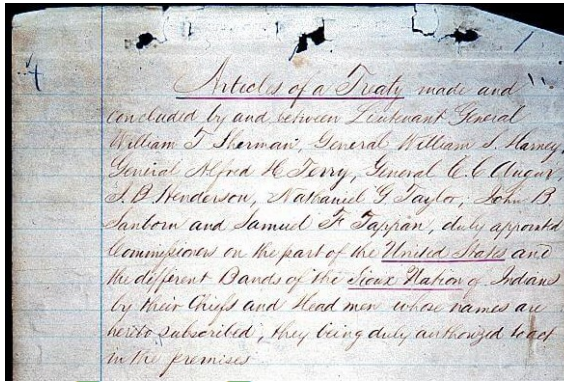 Articles of a Treaty made and
concluded by and between Lieutenant General
William T Sherman, General William S. Harney,
General Alfred H Terry, General C. C Augur,
J. B Henderson, Nathaniel G Taylor, John B
Sanborn and Samuel F Tappan, duly appointed
Commissioners on the part of the United States and
the different Bands of the Sioux Nation of Indians
by their Chiefs and Head men whose names are
hereto subscribed, they being duly authorized to act
in the premises